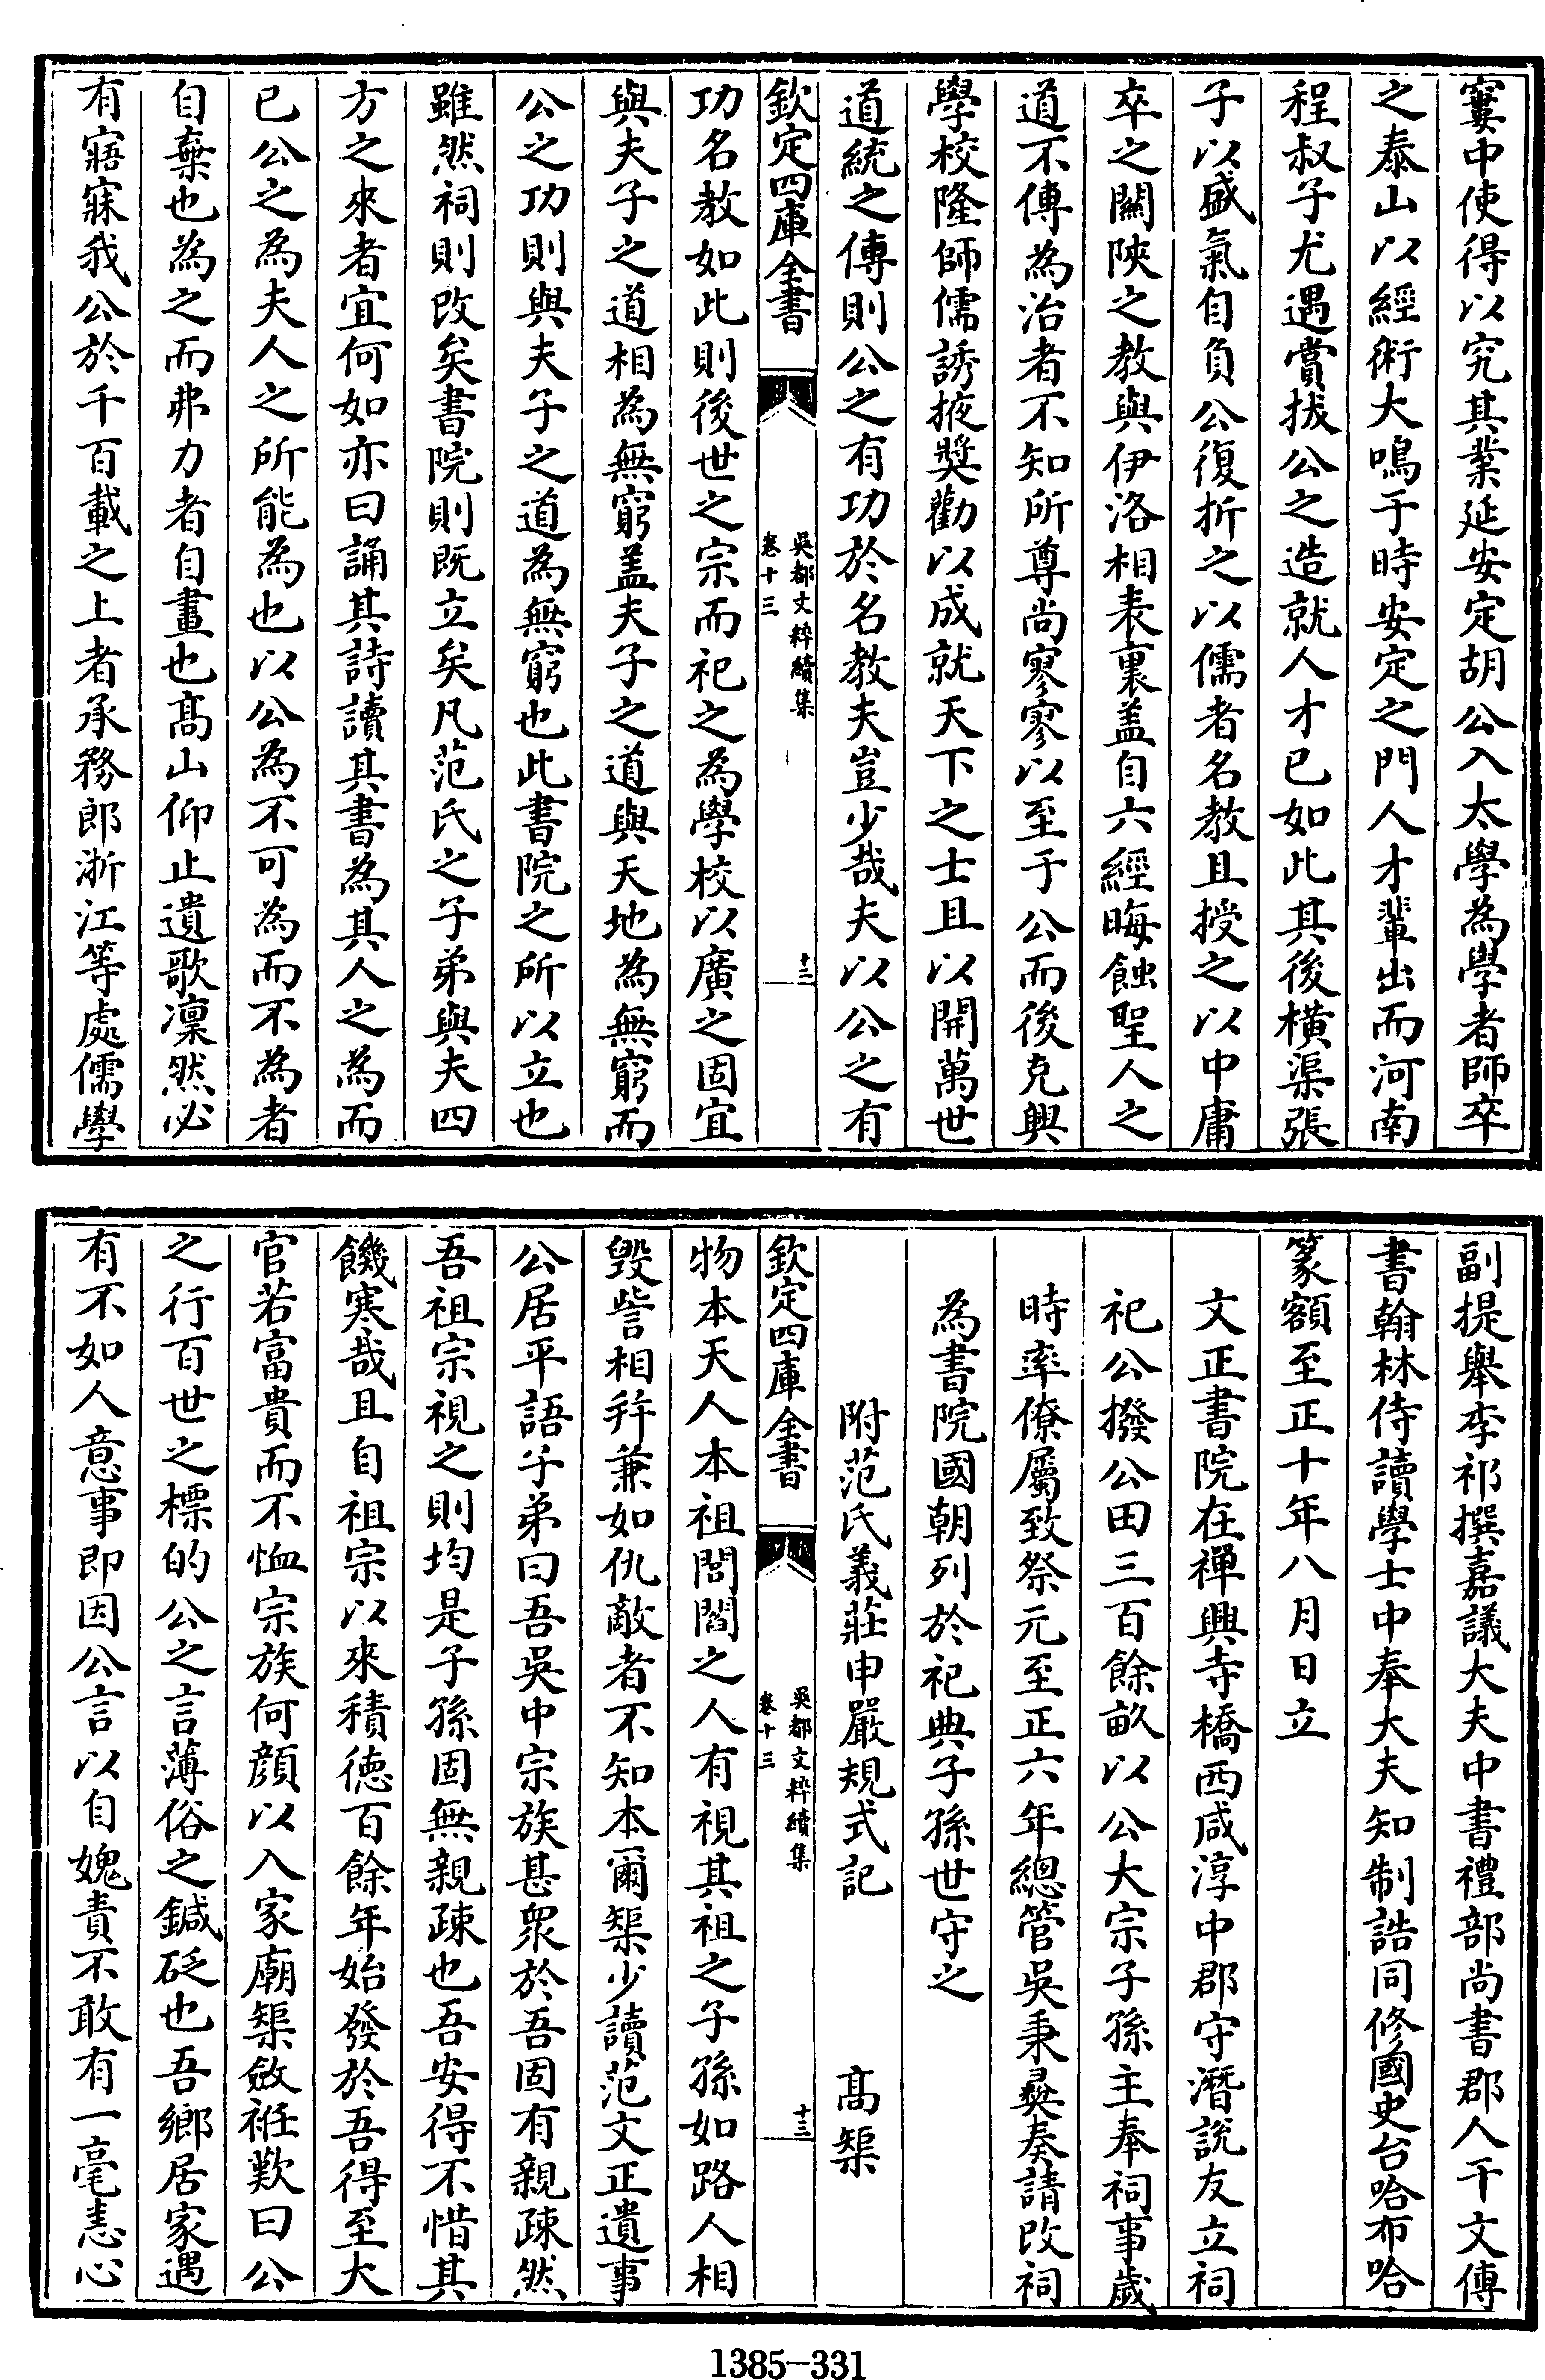 窶中使得以究其業延安定胡公入太學為學者師卒
之泰山以經術大鳴于時安定之門人才輩出而河南
程叔子尤遇賞拔公之造就人才已如此其後橫渠張
子以盛氣自負公復折之以儒者名教且授之以中庸
卒之關陝之教與伊洛相表裏盖自六經晦蝕聖人之
道不傳為治者不知所尊尚寥寥以至于公而後克興
學校隆師儒誘掖奬勸以成就天下之士且以開萬世
道統之傳則公之有功於名教夫豈少哉夫以公之有
欽定四庫全書
吳都文粹續集
卷十三
十二
功名教如此則後世之宗而祀之為學校以廣之固宜
與夫子之道相為無窮盖夫子之道與天地為無窮而
公之功則與夫子之道為無窮也此書院之所以立也
雖然祠則改矣書院則既立矣凡范氏之子弟與夫四
方之來者宜何如亦曰誦其詩讀其書為其人之為而
已公之為夫人之所能為也以公為不可為而不為者
自棄也為之而弗力者自畫也髙山仰止遺歌凜然必
有寤寐我公於千百載之上者承務郎浙江等處儒學
副提舉李祁撰嘉議大夫中書禮部尚書郡人干文傳
書翰林侍讀學士中奉大夫知制誥同修國史台哈布哈
篆額至正十年八月日立
文正書院在禪興寺橋西咸淳中郡守潛說友立祠
祀公撥公田三百餘畝以公大宗子孫主奉祠事歲
時率僚屬致祭元至正六年總管吳秉彛奏請改祠
為書院國朝列於祀典子孫世守之
附范氏義莊申嚴規式記 髙榘
欽定四庫全書
吳都文粹續集
卷十三
十三
物本天人本祖閭閻之人有視其祖之子孫如路人相
毀訾相幷兼如仇敵者不知本爾榘少讀范文正遺事
公居平語子弟曰吾吳中宗族甚衆於吾固有親疎然
吾祖宗視之則均是子孫固無親疎也吾安得不惜其
饑寒哉且自祖宗以來積徳百餘年始發於吾得至大
官若富貴而不恤宗族何顔以入家廟榘斂袵歎曰公
之行百世之標的公之言薄俗之鍼砭也吾鄉居家遇
有不如人意事即因公言以自媿責不敢有一毫恚心
1385-331